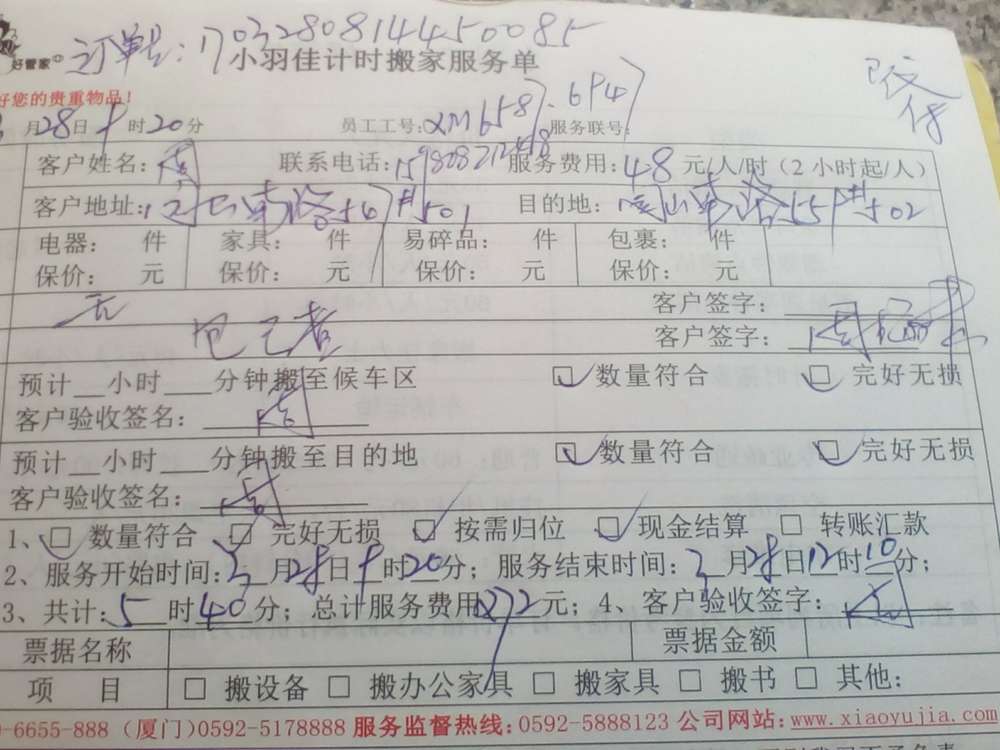 好管家 订单号:170328081445 0085
小羽佳计时搬家服务单
好您的贵重物品!
已交
月28日 时20分 员工工号:XM658 服务联号:
客户姓名:周 联系电话: 服务费用:48元/人/时(2小时起/人)
客户地址: 南路 501 目的地: 南路55 502
电器: 件 家具: 件 易碎品: 件 包裹: 件
保价: 元 保价: 元 保价: 元 保价: 元
无 客户签字:
客户签字:周
预计__小时____分钟搬至候车区 数量符合 完好无损
客户验收签名:周
预计__小时____分钟搬至目的地 数量符合 完好无损
客户验收签名:周
1、 数量符合 完好无损 按需归位 现金结算 □ 转账汇款
2、服务开始时间:3月28日 时20分;服务结束时间:3月28日12时10分;
3、共计:5时40分;总计服务费用272元;4、客户验收签字:周
票据名称 票据金额
项 目 □ 搬设备 □ 搬办公家具 □ 搬家具 □ 搬书 □ 其他:
-6655-888 (厦门)0592-5178888 服务监督热线:0592-5888123 公司网站:www.xiaoyujia.com